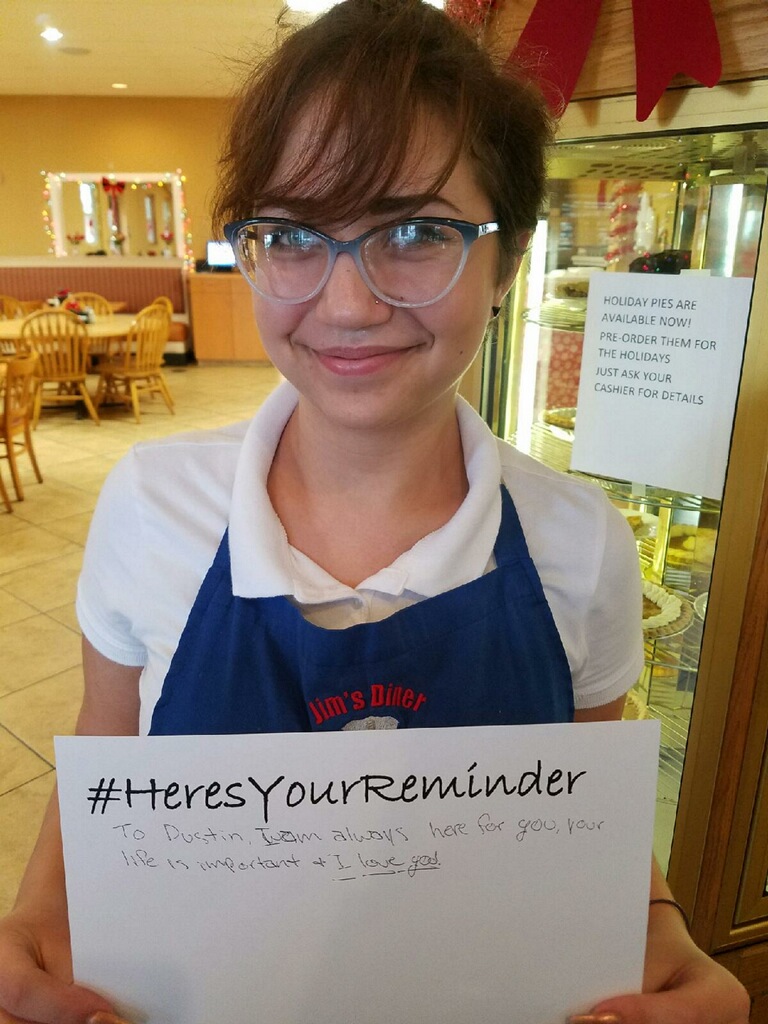 HOLIDAY PIES ARE
AVAILABLE NOW!
PRE-ORDER THEM FOR
THE HOLIDAYS
JUST ASK YOUR
CASHIER FOR DETAILS
Jim's Diner
#HeresYourReminder
To Dustin, I am always here for you, your
life is important + I love you.